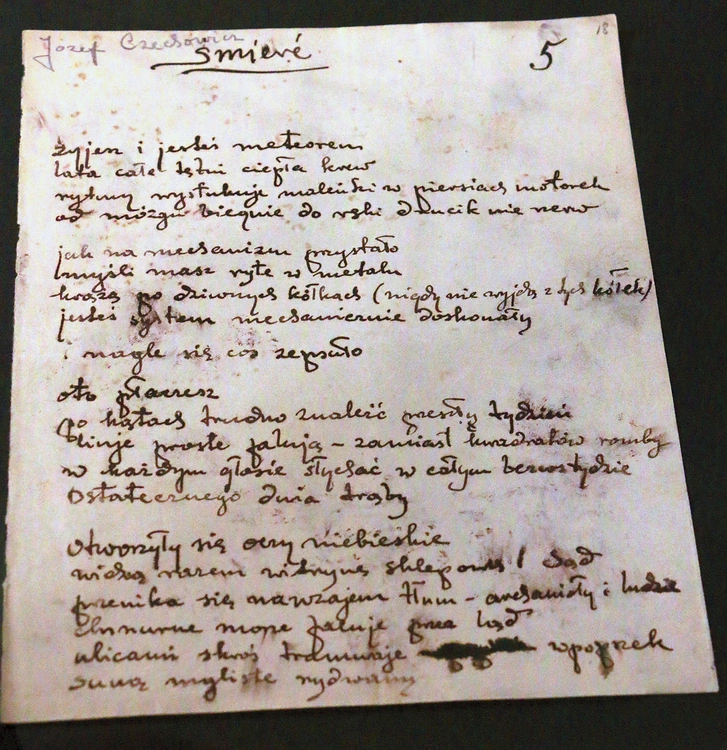 Józef Czechowicz
18
śmierć
5
żyjesz i jesteś meteorem
lata całe tętni ciepła krew
rytmy wystukuje maleńki w piersiach motorek
od mózgu biegnie do ręki drucik nie nerw
jak na mechanizm przystało
myśli masz ryte w metalu
krążą po dziwnych kółkach (nigdy nie wyjdą z tych kółek)
jesteś system mechanicznie doskonały
i nagle się coś zepsuło
oto płaczesz
po kątach trudno znaleźć przeszły tydzień
linje proste falują – zamiast kwadratów romby
w każdym głosie słychać w całym bezwstydzie
Ostatecznego dnia trąby
otworzyły się oczy niebieskie
widzą razem witrynę sklepową i Sąd
przenika się nawzajem tłum – archanioły i ludzie
chmurne morze faluje przez ląd
ulicami skroś tramwaje wpoprzek
suną mgliste rydwany